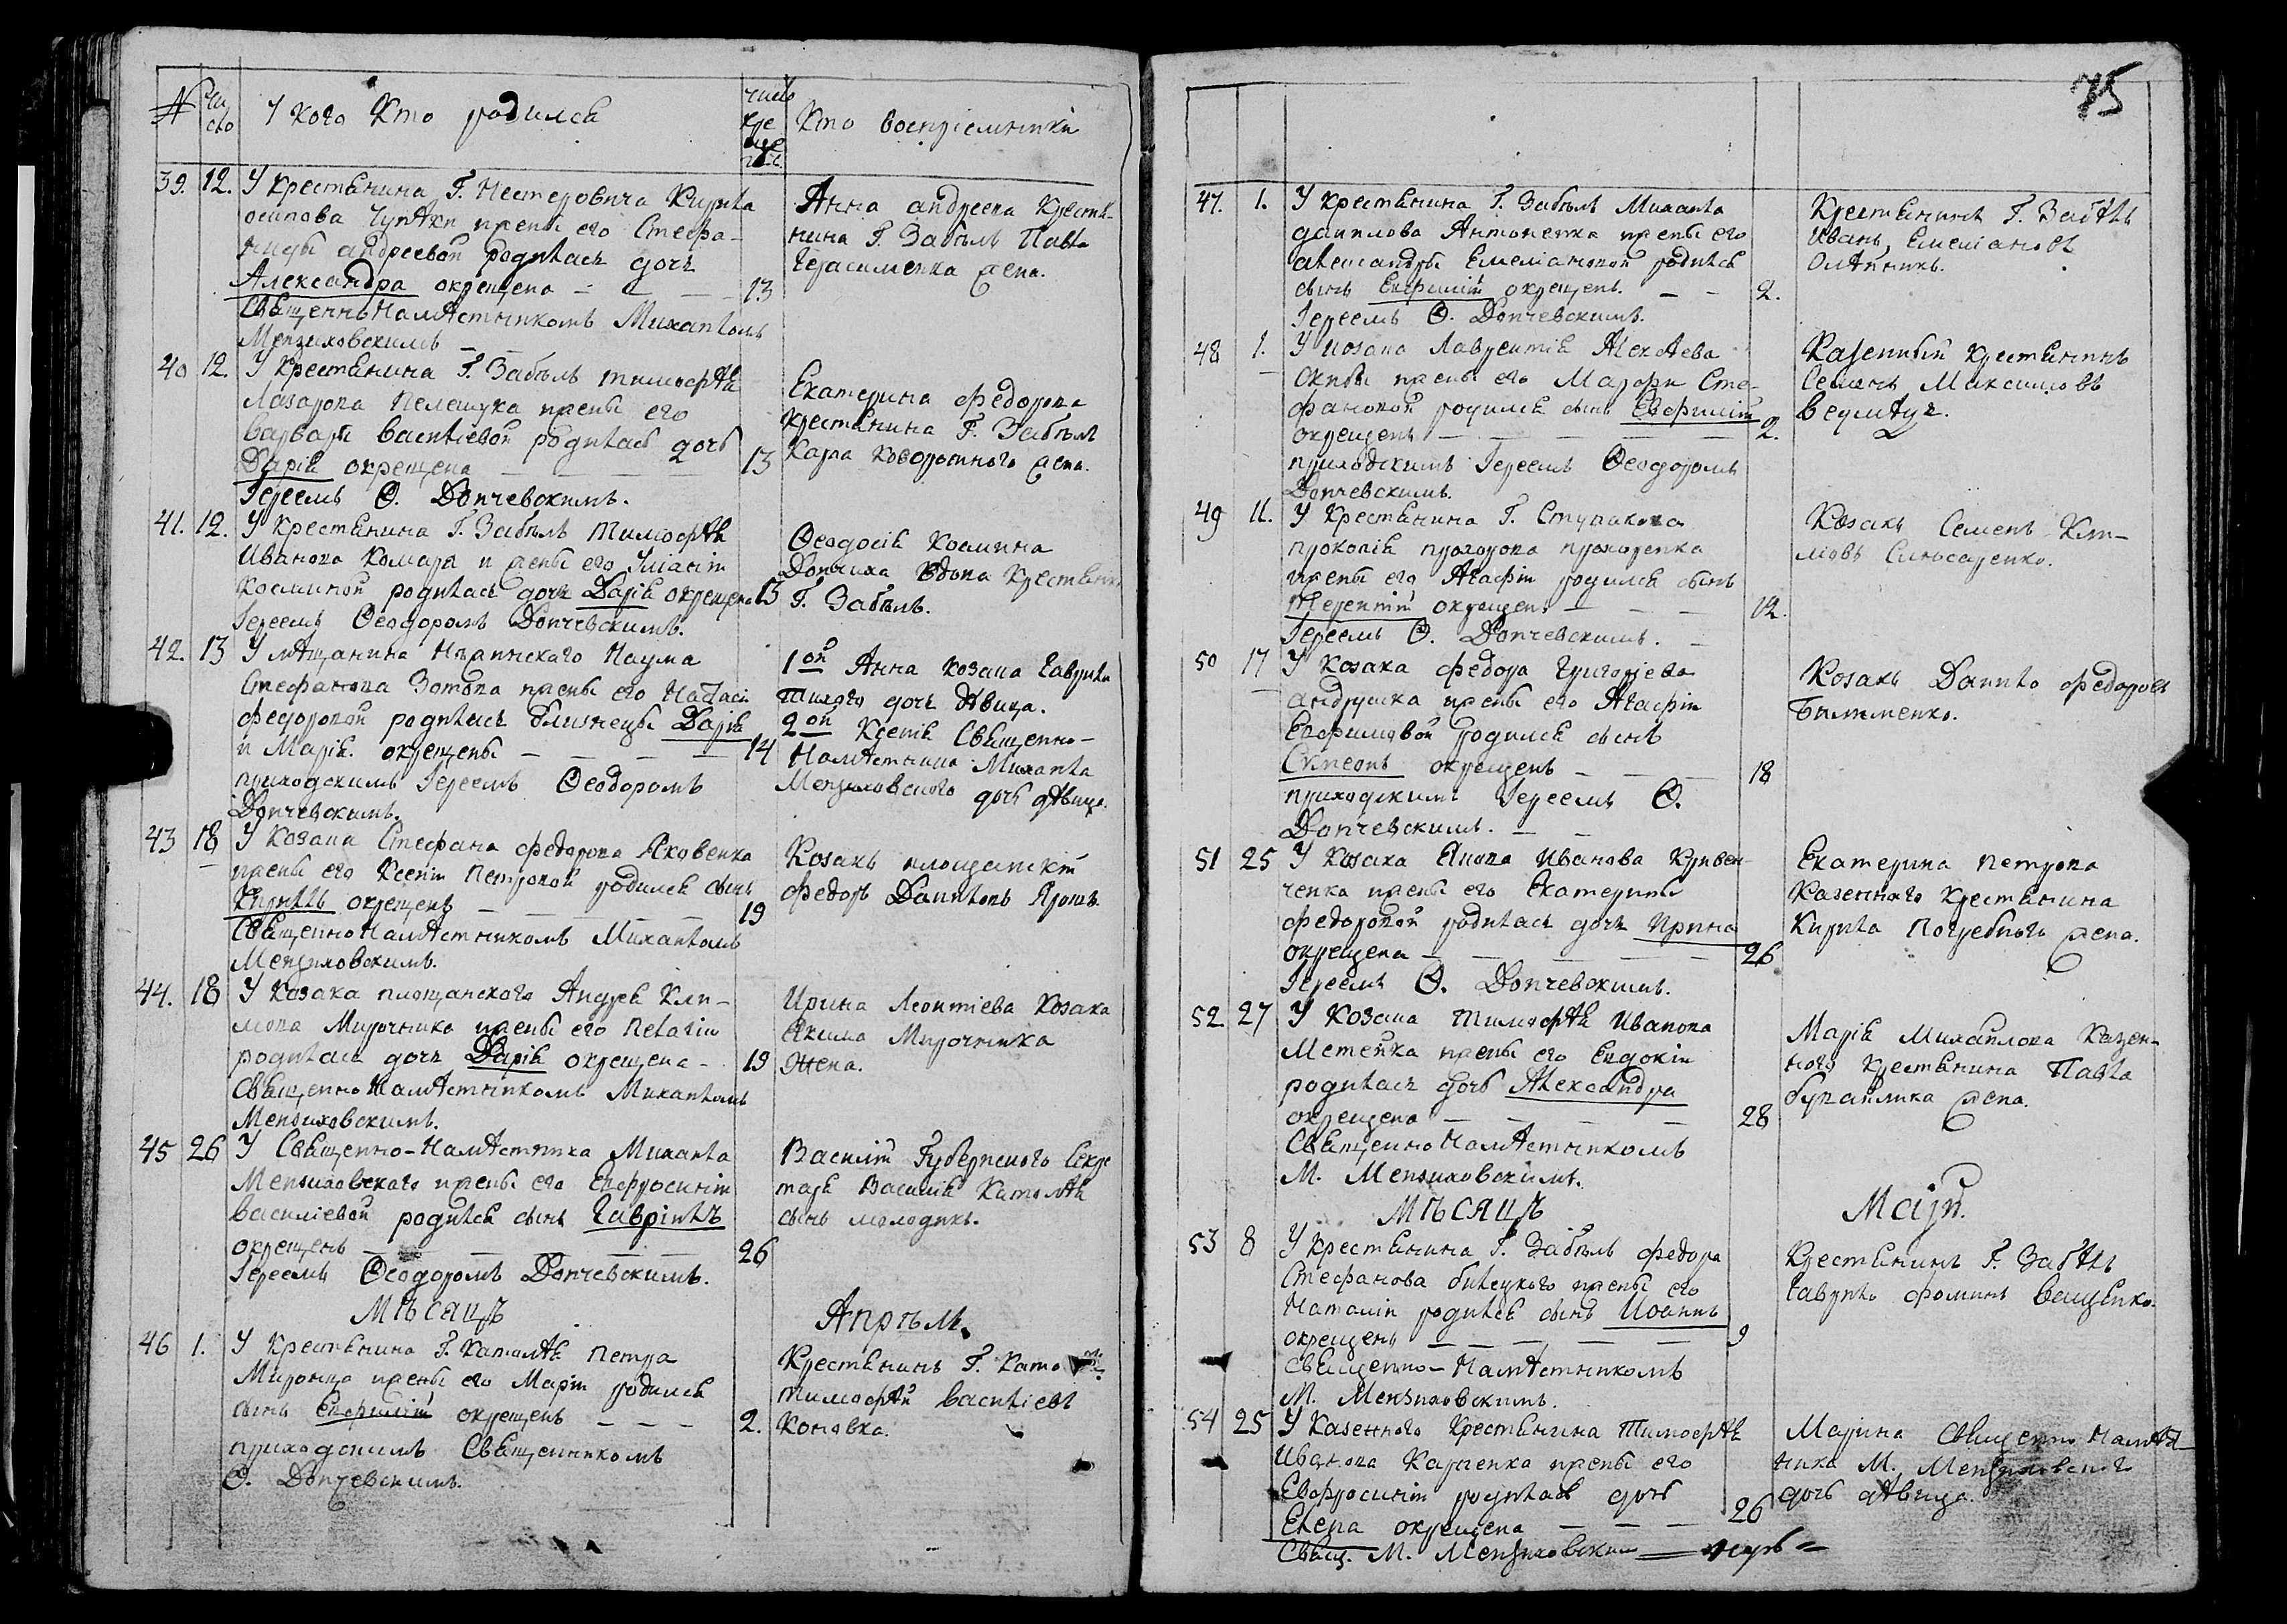 75
№ Чи сло У кого Кто родился число кре ще нія Кто воспріемники
39. 12. У крестянина Г. Нестеровича Кирила
осипова Чупахи жены его Стефа-
ниды андреевой родилась дочь
Александра окрещена — — — 13
Священнонамѣстникомъ Михаиломъ
Мензиховскимъ
Анна андреева Крестя-
нина Г. Забѣлъ Павла
Герасименка жена.
40 12. У крестянина Г. Забѣлъ тимофѣя
Лазарова Пелешука жены его
варвары василіевой родилась дочь
Дарія окрещена — — 13
Іереемъ Ѳ. Допчевскимъ.
Екатерина федорова
крестянина Г. Забѣлъ
Карпа жена.
41. 12. У крестянина Г. Забѣлъ Тимофѣя
Иванова Комара и жены его Уліаніи
Косминой родилась дочь Дарія окрещена 13
Іереемъ Ѳеодоромъ Допчевскимъ.
Ѳеодосія Космина
вдова крестянка
Г. Забѣлъ.
42. 13 У мѣщанина Наума
Стефанова Зотова жены его
федоровой родилась близнецы Дарія
и Марія. окрещены — — — 14
приходскимъ Іереемъ Ѳеодоромъ
Допчевскимъ.
1ой Анна козака Гаврила
дочь дѣвица.
2ой Ксенія Священно-
Намѣстника Михаила
Мензиховского дочь дѣвица.
43 18 У Козака Стефана федорова Яковенка
жены его Ксеніи Петровой родился сынъ
Кирилъ окрещенъ — — — 19
СвященноНамѣстникомъ Михаиломъ
Мензиховскимъ.
Козакъ площанскій
федоръ Даниловъ Ярошъ.
44. 18 У Козака площанского Андрея Кли-
мова Мирочника жены его Пелагіи
родилась дочь Дарія окрещена — 19
СвященноНамѣстникомъ Михаиломъ
Мензиховскимъ.
Ирина Леонтіева Козака
Якима Мирочника
Жена.
45 26 У Священно-Намѣстника Михаила
Мензиховского жены его Евфросиніи
Василіевой родился сынъ Гавріилъ
окрещенъ — — — — 26
Іереемъ Ѳеодоромъ Допчевскимъ.
Василій Губернского Секре
таря Василія
сынъ молодикъ.
Мѣсяцъ Апрѣль.
46 1. У Крестянина Г. Католѣя Петра
Миронца жены его Маріи родился
сынъ Евфимій окрещенъ — — — 2.
приходскимъ Священникомъ
Ѳ. Допчевскимъ.
Крестянинъ Г.
тимофѣй василіевъ
Коновка.
47. 1. У крестянина Г. Забѣлъ Михаила
данилова Антоненка жены его
александры Емеліановой родился
сынъ Евфимій окрещенъ. — — 2.
Іереемъ Ѳ. Допчевскимъ.
Крестянинъ Г. Забѣлъ
Иванъ Емеліановъ
Олѣйникъ.
48 1. У козака Лаврентія Алексѣева
жены его Марфы Сте-
фановой родился сынъ Евфимій
окрещенъ — — — — 2.
приходскимъ Іереемъ Ѳеодоромъ
Допчевскимъ.
Казенный крестянинъ
Семенъ Максимовъ
49 11. У Крестянина Г. Ступакова
прокопія прохорова прохоренка
жены его Агафіи родился сынъ
Терентій окрещенъ — — — 12.
Іереемъ Ѳ. Допчевскимъ. —
Козакъ Семенъ Кли-
мовъ Слюсаренко.
50 17 У Козака федора Григоріева
андрушка жены его Агафіи
Евфимовой родился сынъ
Симеонъ окрещенъ — — — 18
приходскимъ Іереемъ Ѳ.
Допчевскимъ. — —
Козакъ Данило федоровъ
51 25 У Козака Якова Иванова Кривен-
ченка жены его Екатерины
федоровой родилась дочь Ирина
окрещена — — — — 26
Іереемъ Ѳ. Допчевскимъ.
Екатерина Петрова
Казенного Крестянина
Кирила Погребного жена.
52 27 У Козака Тимофѣя Иванова
Метейка жены его Евдокіи
родилась дочь Александра
окрещена — — — — 28
СвященноНамѣстникомъ
М. Мензиховскимъ.
Марія Михайлова Казен-
ного Крестянина Павла
жена.
Мѣсяцъ Маій.
53 8 У крестянина Г. Забѣлъ федора
Стефанова билецкого жены его
Наталіи родился сынъ Иоаннъ
окрещенъ — — — — 9
Священно-Намѣстникомъ
М. Мензиховскимъ.
Крестянинъ Г. Забѣлъ
Гаврило фоминъ ващенко.
54 25 У Казенного Крестянина Тимофѣя
Иванова Карпенка жены его
Евфросиніи родилась дочь
Елена окрещена — — — 26
Свящ. М. Мензиховским
Марина Священно Намѣст
ника М. Мензиховского
дочь дѣвица.